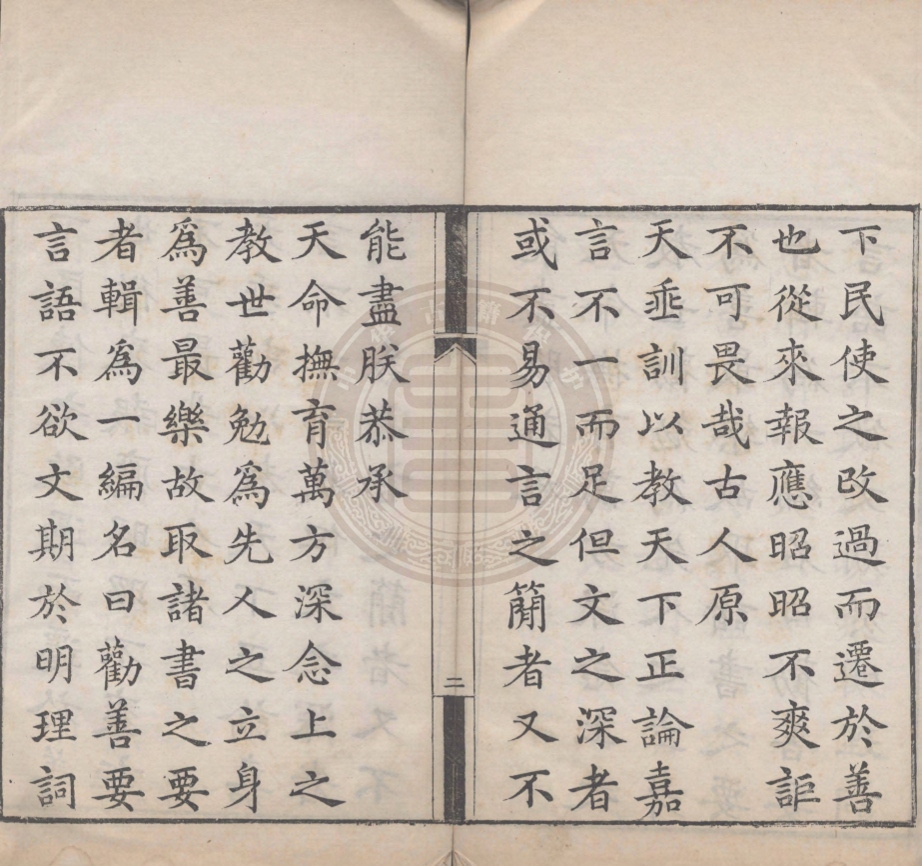 下民使之改過而遷於善
也從來報應昭昭不爽詎
不可畏哉古人原
天垂訓以教天下正論嘉
言不一而足但文之深者
或不易通言之簡者又不
二
能盡朕恭承
天命撫育萬方深念上之
教世勸勉爲先人之立身
爲善最樂故取諸書之要
者輯爲一編名曰勸善要
言語不欲文期於明理詞